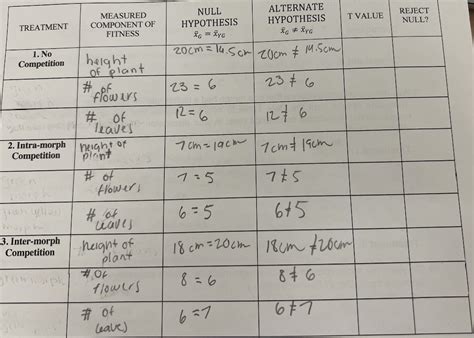 TREATMENT
MEASURED COMPONENT OF FITNESS
NULL HYPOTHESIS
x̄G = x̄YG
ALTERNATE HYPOTHESIS
x̄G ≠ x̄YG
T VALUE
REJECT NULL?
1. No Competition
height of plant
20cm = 14.5cm
20cm ≠ 14.5cm
# of flowers
23 = 6
23 ≠ 6
# of leaves
12 = 6
12 ≠ 6
2. Intra-morph Competition
height of plant
7cm = 19cm
7cm ≠ 19cm
# of flowers
7 = 5
7 ≠ 5
# of leaves
6 = 5
6 ≠ 5
3. Inter-morph Competition
height of plant
18cm = 20cm
18cm ≠ 20cm
# of flowers
8 = 6
8 ≠ 6
# of leaves
6 = 7
6 ≠ 7